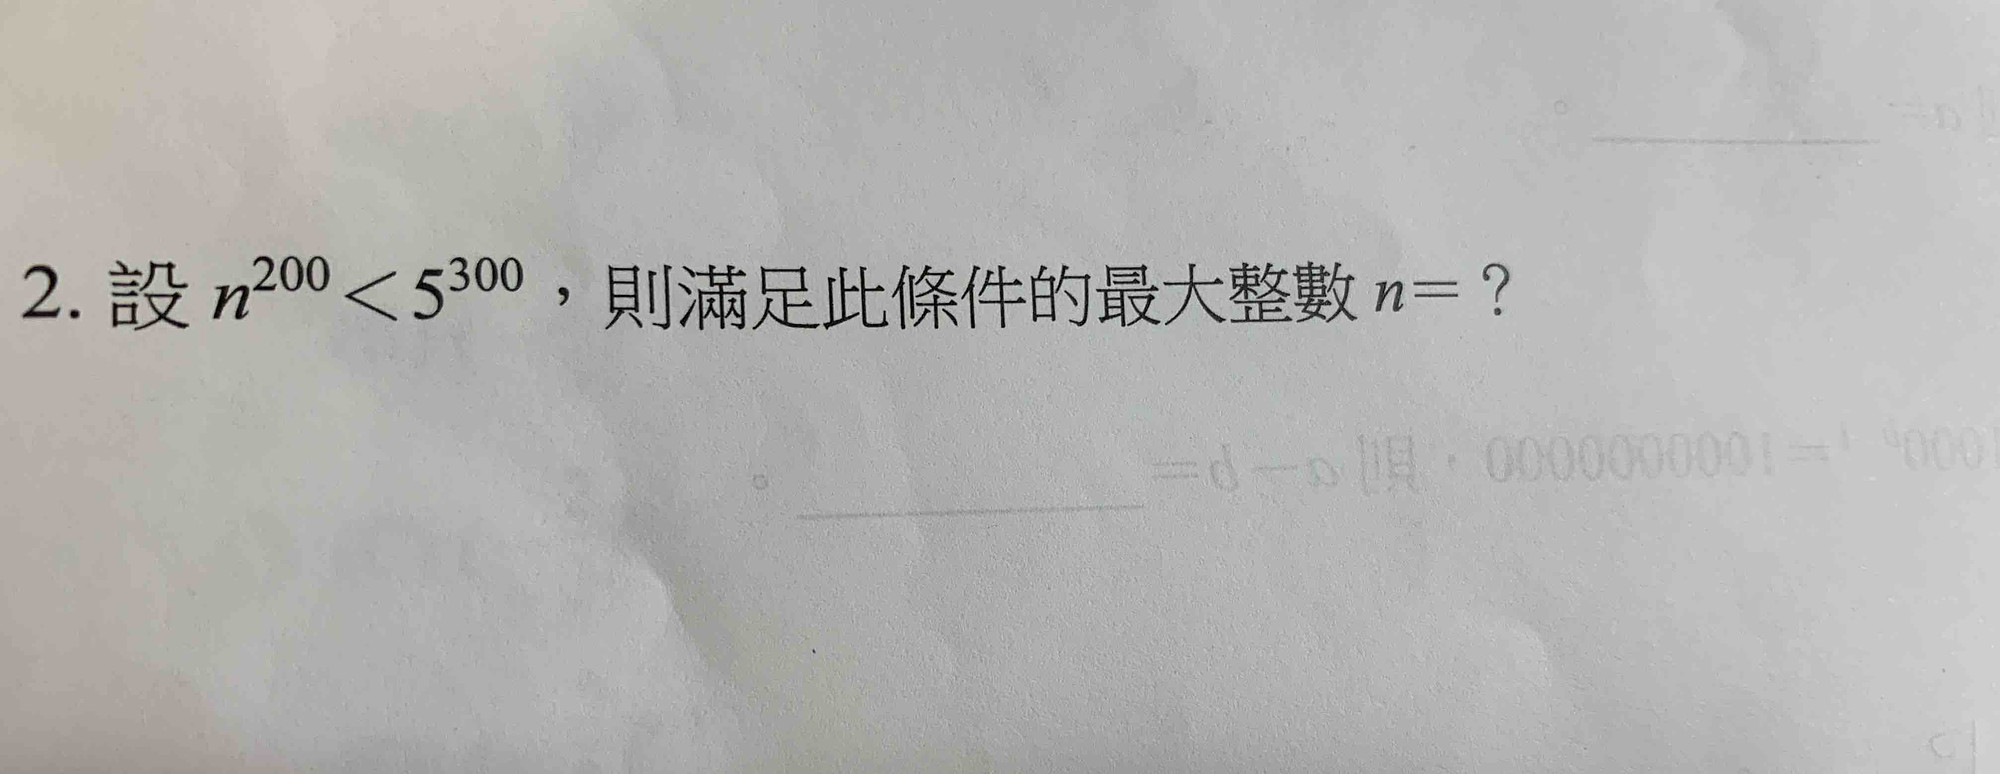 2. 設 n²⁰⁰<5³⁰⁰，則滿足此條件的最大整數 n=？